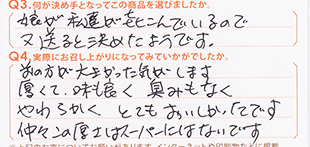 Q3.何が決め手となってこの商品を選びましたか。
娘が私達が喜こんでいるので
又送ると決めたようです。
Q4.実際にお召し上がりになってみていかがでしたか。
前の方が大きかった気がします
厚くて、味も良く 臭みもなく
やわらかく とてもおいしかったです
仲々この厚さはスーパーにはないです